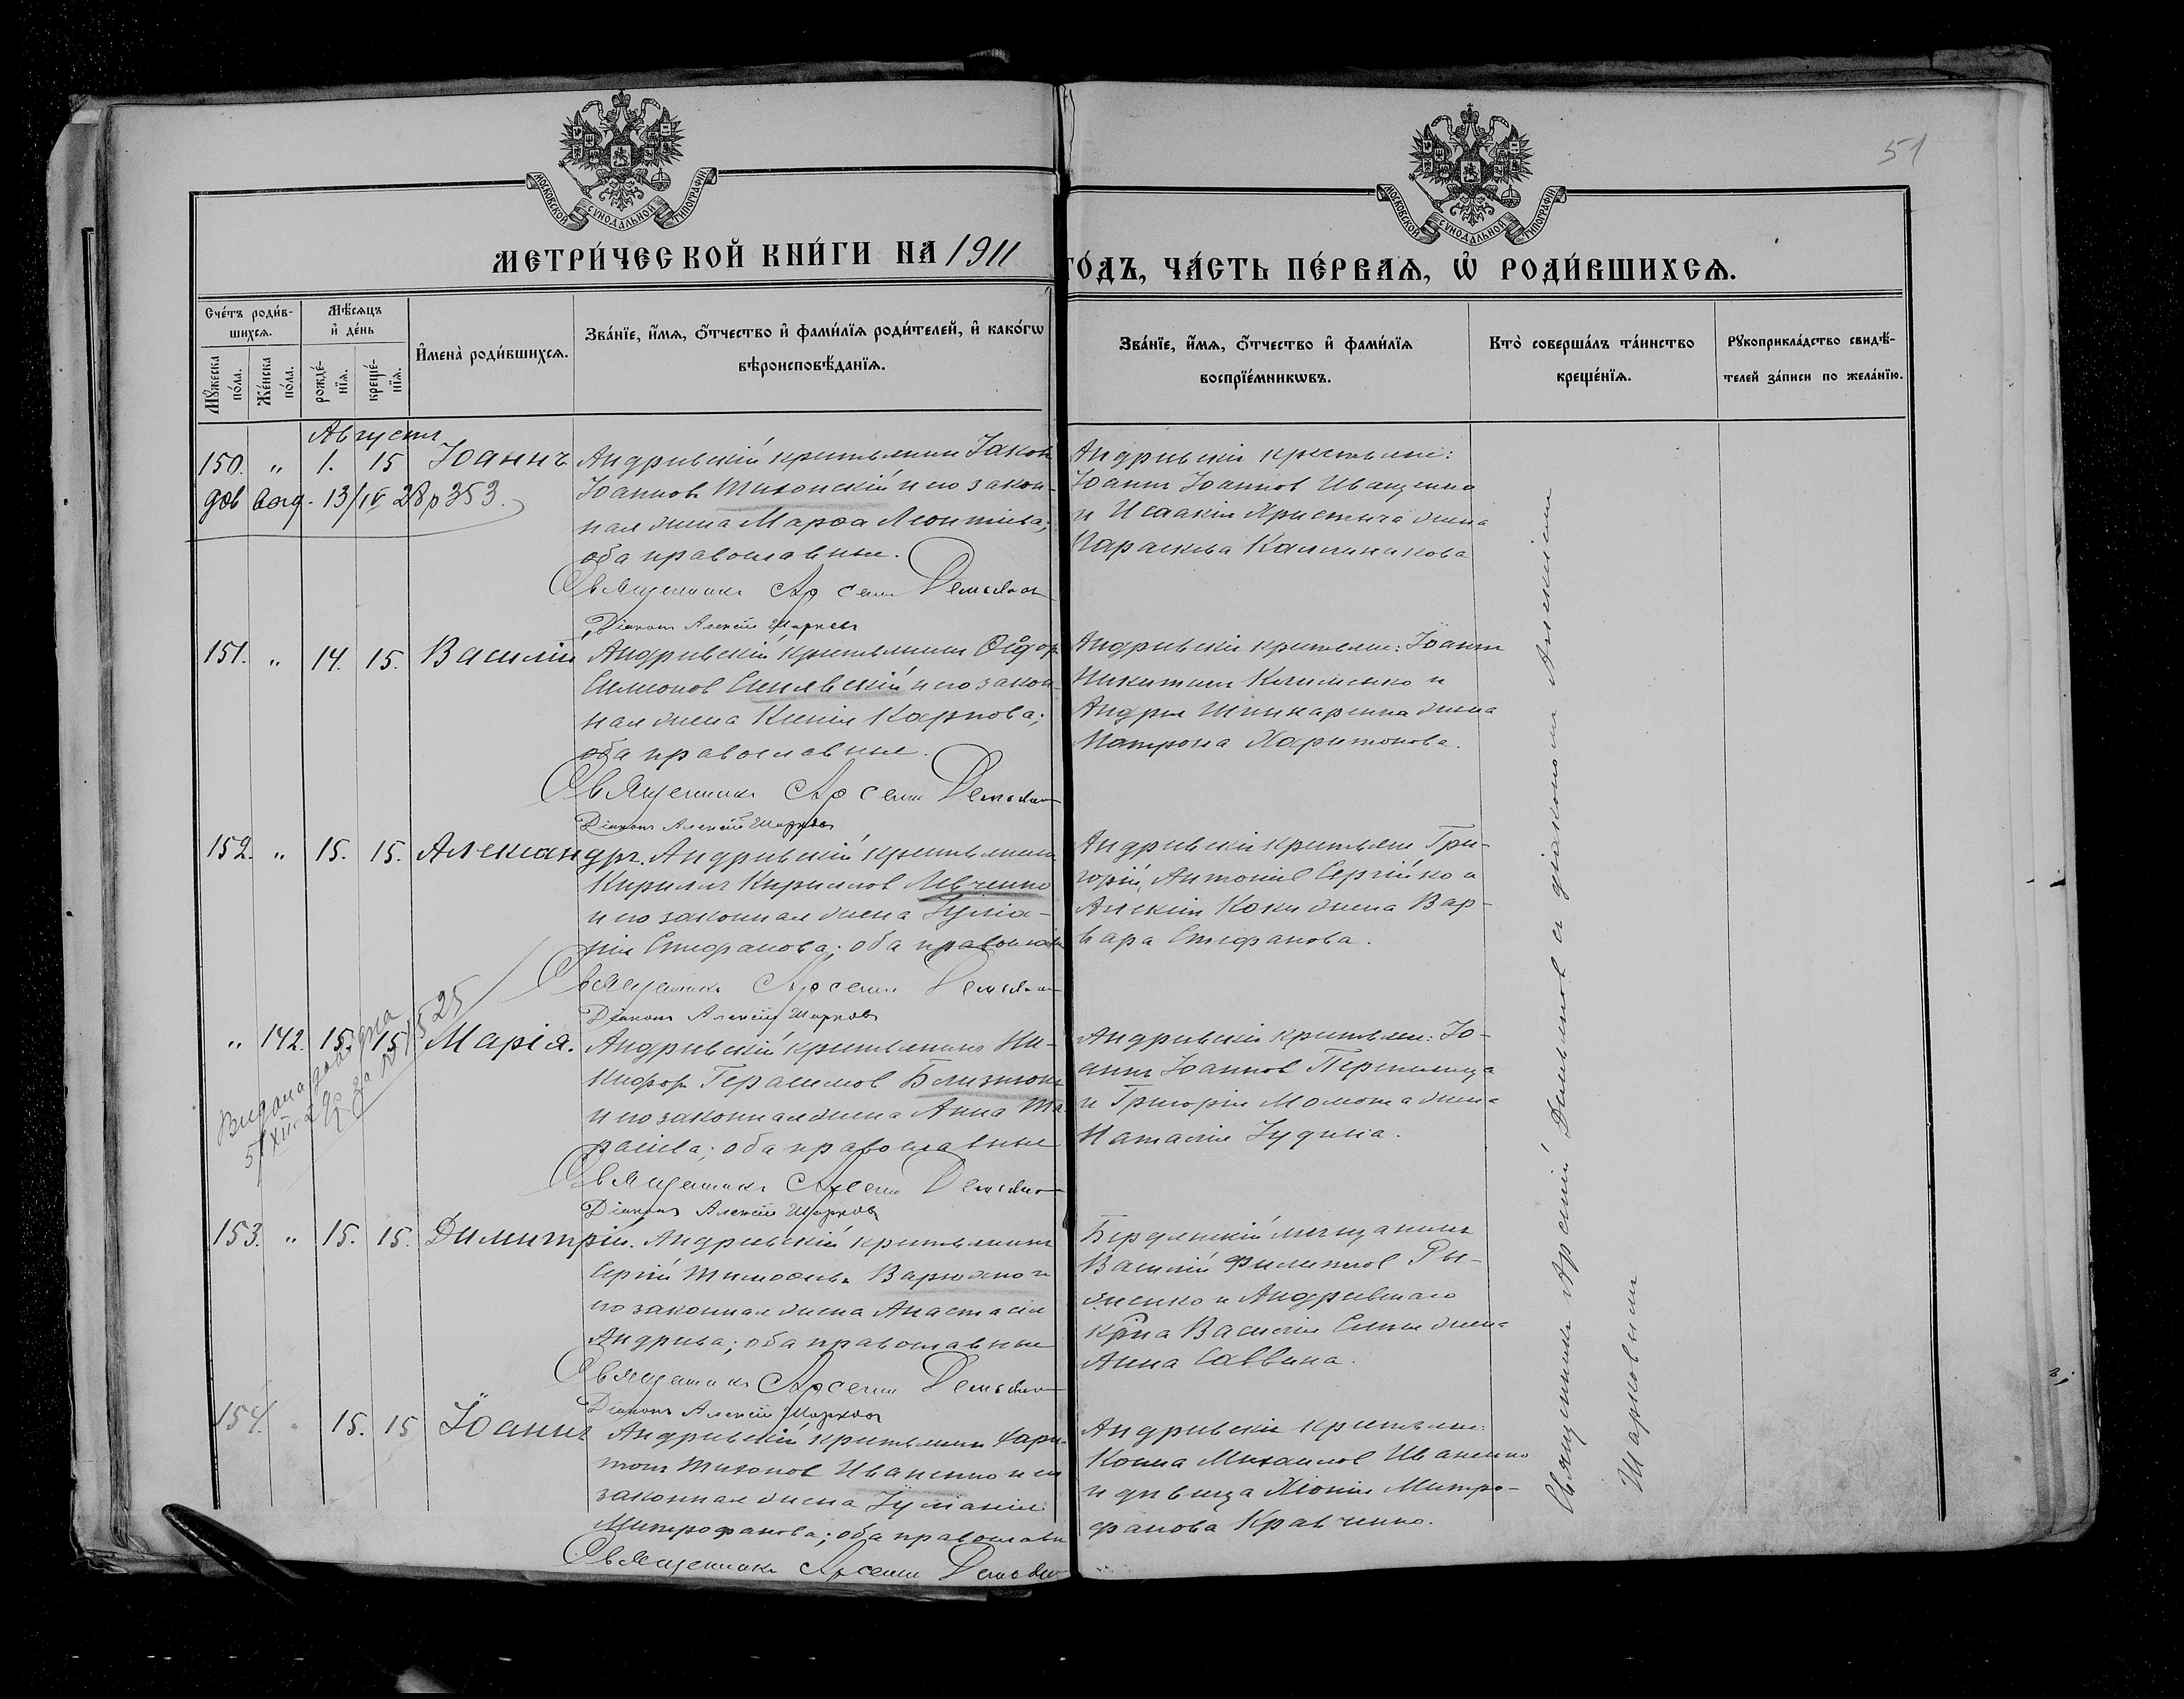 51
МОСКОВСКОЙ СѴНОДАЛЬНОЙ ТИПОГРАФІИ
МОСКОВСКОЙ СѴНОДАЛЬНОЙ ТИПОГРАФІИ
МЕТРИ́ЧЕСКОЙ КНИ́ГИ НА 1911
ГО́ДЪ, ЧА́СТЬ ПЕ́РВАѦ, Ѡ҆ РОДИ́ВШИХСѦ.
Сче́тъ роди́в-
шихсѧ.
Мꙋ́жеска по́ла.
Же́нска по́ла.
Мѣ́сѧцъ
и҆ де́нь
рожде́-
нїѧ.
креще́-
нїѧ.
И҆мена̀ роди́вшихсѧ.
Зва́нїе, и҆́мѧ, ѻ҆́тчество и҆ фами́лїѧ роди́телей, и҆ како́гѡ
вѣроисповѣ́данїѧ.
Зва́нїе, и҆́мѧ, ѻ҆́тчество и҆ фами́лїѧ
воспрїе́мникѡвъ.
Кто̀ соверша́лъ та́инство
креще́нїѧ.
Рꙋкоприкла́дство свидѣ́-
телей за́писи по жела́нїю.
Августъ
150. " 1. 15 Іоаннъ
Андреевскій крестьянинъ Іаков
Іоаннов Тихонскій и его закон-
ная жена Марѳа Леонтіева;
оба православные.
Священникъ Арсеній
Діаконъ Алексій Шарков
Андреевскіе крестьяне:
Іоаннъ Іоаннов Иващенко
и Исаакія жена
Параскева Калиникова
13/IV 28 р 353.
151. " 14. 15. Василій
Андреевскій крестьянинъ Ѳеодор
Симонов Синявскій и его закон-
ная жена Ксенія Карпова;
оба православные.
Священникъ Арсеній
Діаконъ Алексій Шарков
Андреевскіе крестьяне: Іоаннъ
Никитинъ Клименко и
Андрея Шинкаренка жена
Матрона Харитонова.
152. " 15. 15. Александръ.
Андреевскій крестьянинъ
Кириллъ Кириллов Левченко
и его законная жена Іуліа-
нія Стефанова; оба православ
Священникъ Арсеній
Діаконъ Алексій Шарков
Андреевскіе крестьяне Гри-
горій Антоніев Сергійко и
Алексія Коки жена Вар-
вара Стефанова.
" 142. 15. 15. Марія.
Андреевскій крестьянинъ Ни-
кифор Герасимов Близнюкъ
и его законная жена Анна Та-
расіева; оба православные
Священникъ Арсеній
Діаконъ Алексій Шарков
Андреевскіе крестьяне: Іо-
аннъ Іоаннов
и Григорія Момота жена
Наталія Іудина.
Видана
153. " 15. 15. Димитрій.
Андреевскій крестьянинъ
Сергій Тимоѳеев
его законная жена Анастасія
Андреева; оба православные
Священникъ Арсеній
Діаконъ Алексій Шарков
Бердянскій мещанинъ
Василій Филиппов
и Андреевскаго
кр̃на Василія жена
Анна Саввина.
154. " 15. 15 Іоаннъ
Андреевскій крестьянинъ Хари-
тонъ Тихонов Иваненко и его
законная жена Іуліанія
Митрофанова; оба православн
Священникъ Арсеній
Андреевскіе крестьяне:
Косма Михаилов Иваненко
и девица Хіонія Митро-
фанова Кравченко.
Священникъ Арсеній с діакономъ Алексіемъ
Шарковымъ